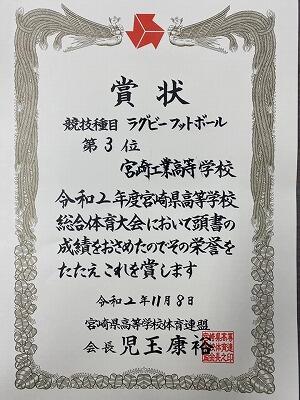 賞状
競技種目 ラグビーフットボール
第3位
宮崎工業高等学校
令和2年度宮崎県高等学校
総合体育大会において頭書の
成績をおさめたのでその栄誉を
たたえこれを賞します
令和2年11月8日
宮崎県高等学校体育連盟
会長 児玉康裕